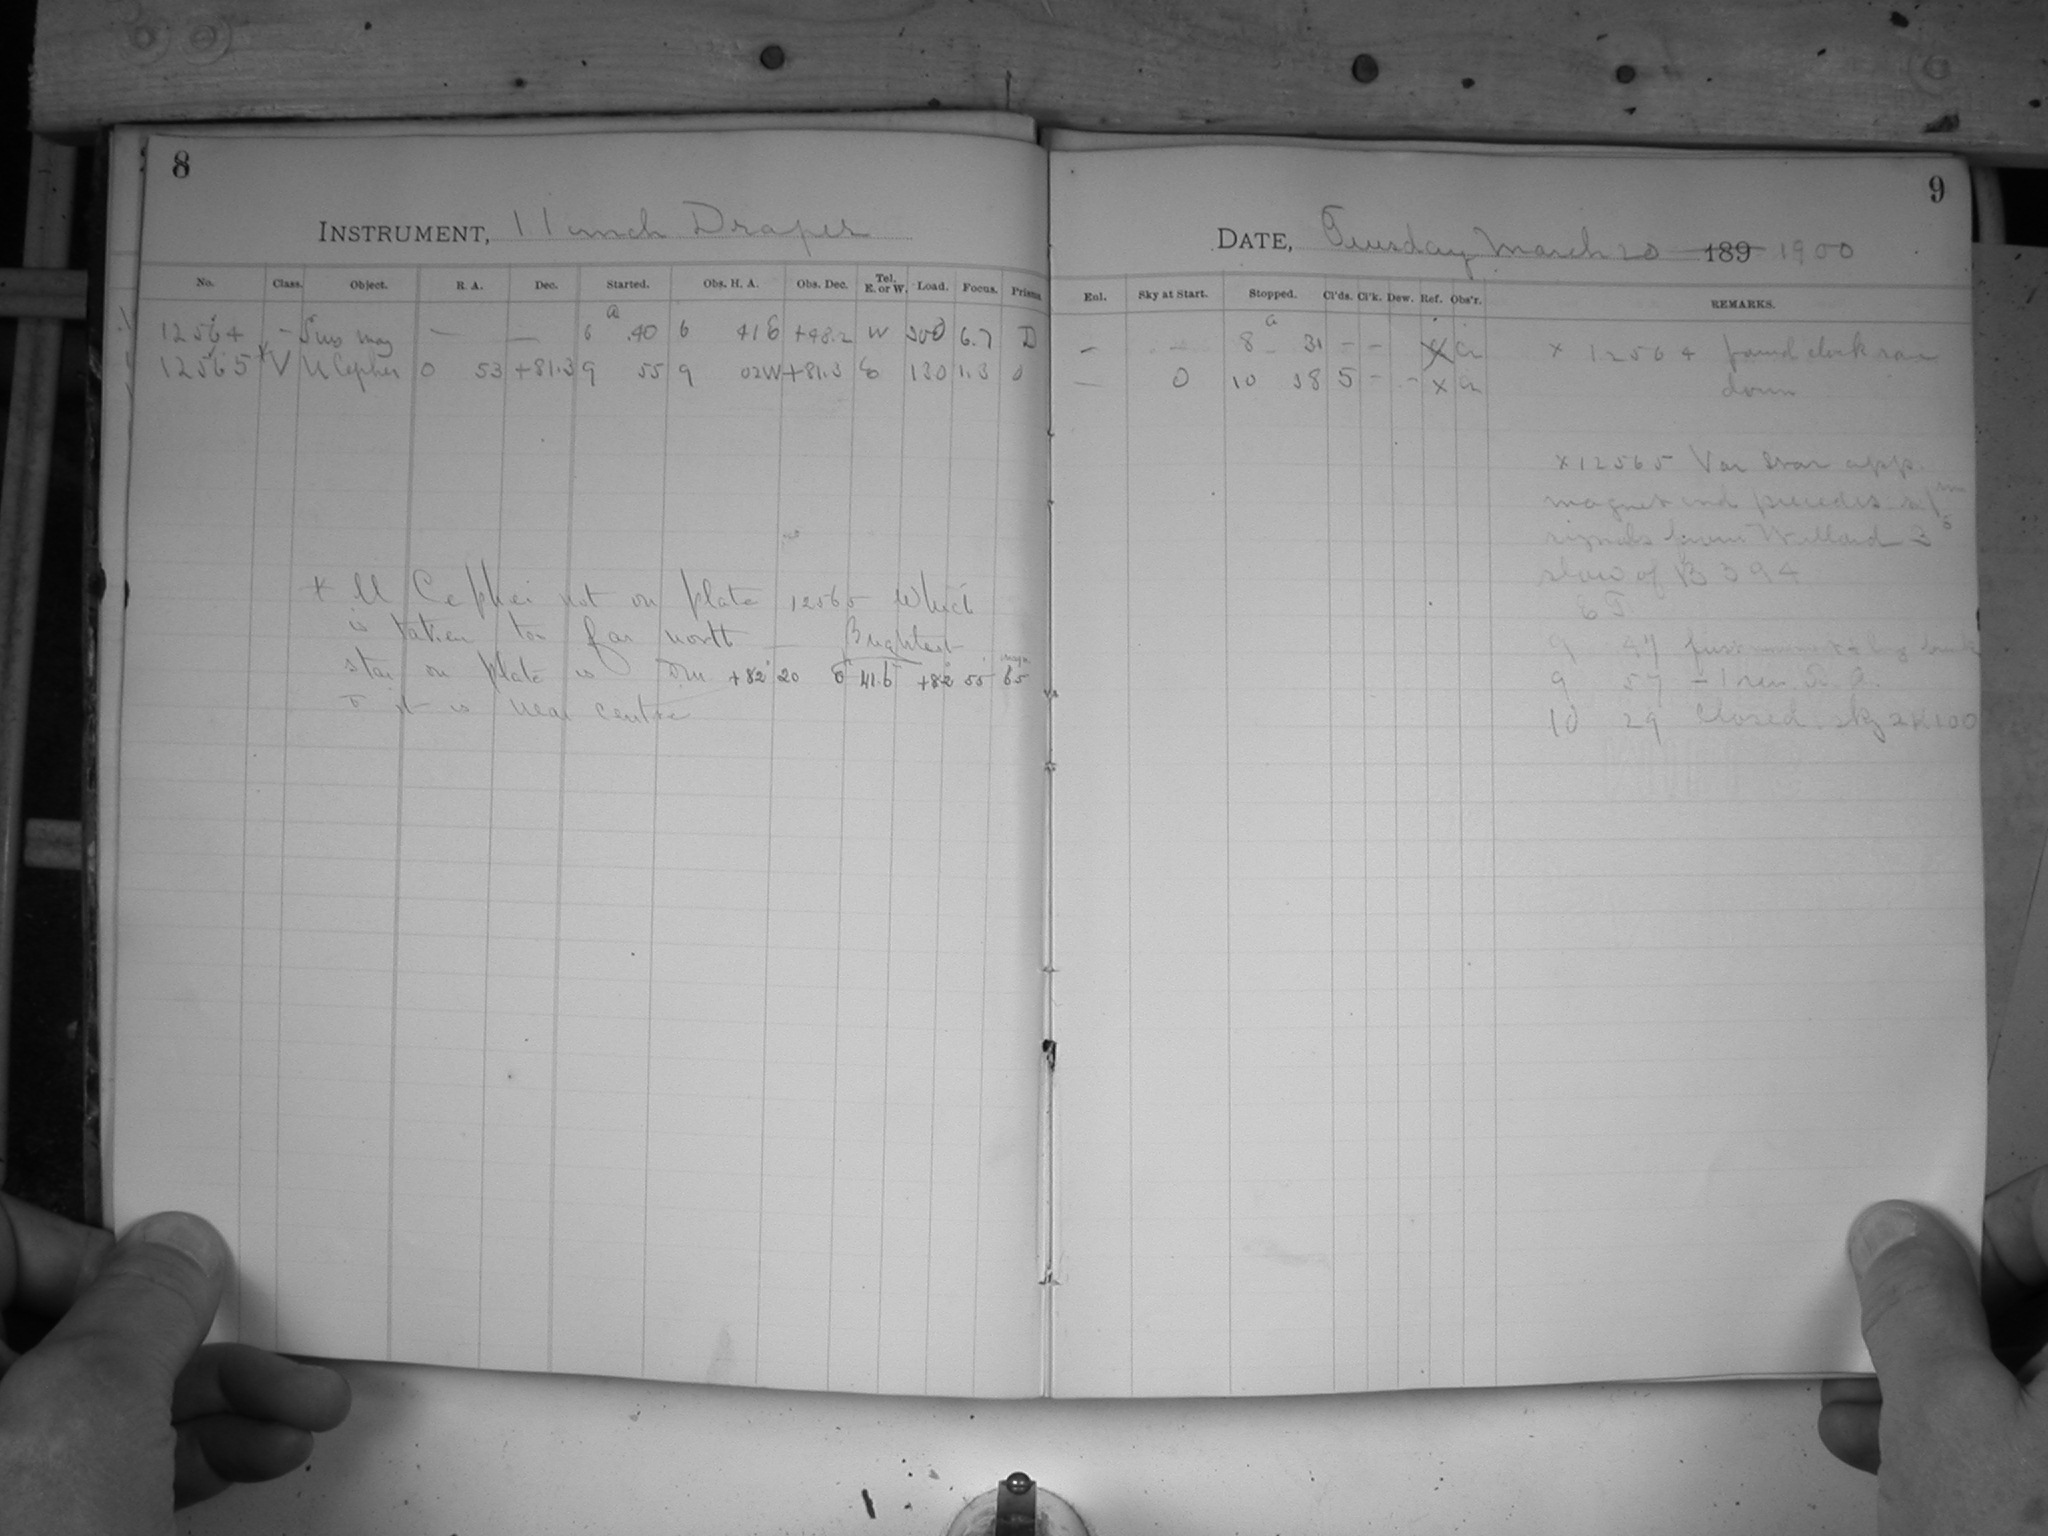 8
INSTRUMENT, 11 inch Draper
No. Class. Object. R. A. Dec. Started. Obs. H. A. Obs. Dec. Tel. E. or W. Load. Focus. Prisms
12564 – Urs maj — — 6 40 6 416 +48.2 W 300 6.7 D
12565 * V U Cephei 0 53 +81.3 9 55 9 02W +81.3 E 130 1.3 0
* U Cephei not on plate 12565 which
is taken too far north — Brightest
star on plate is Dm +82° 20 41.6 +82° 55 6.5
it is near centre
9
DATE, Tuesday March 20 189 1900
Eol. Sky at Start. Stopped. Cl'ds. Cl'k. Dew. Ref. Obs'r. REMARKS.
– – 8 31 – – × 12564 found clock run
down
– 0 10 38 5 – – x
× 12565 Var star app.
magnet ind precedes
signals from Willard 3 s
slow of B 394
9 47
9 57 – 1 rev. R. A.
10 29 Closed. sky 2 K 100